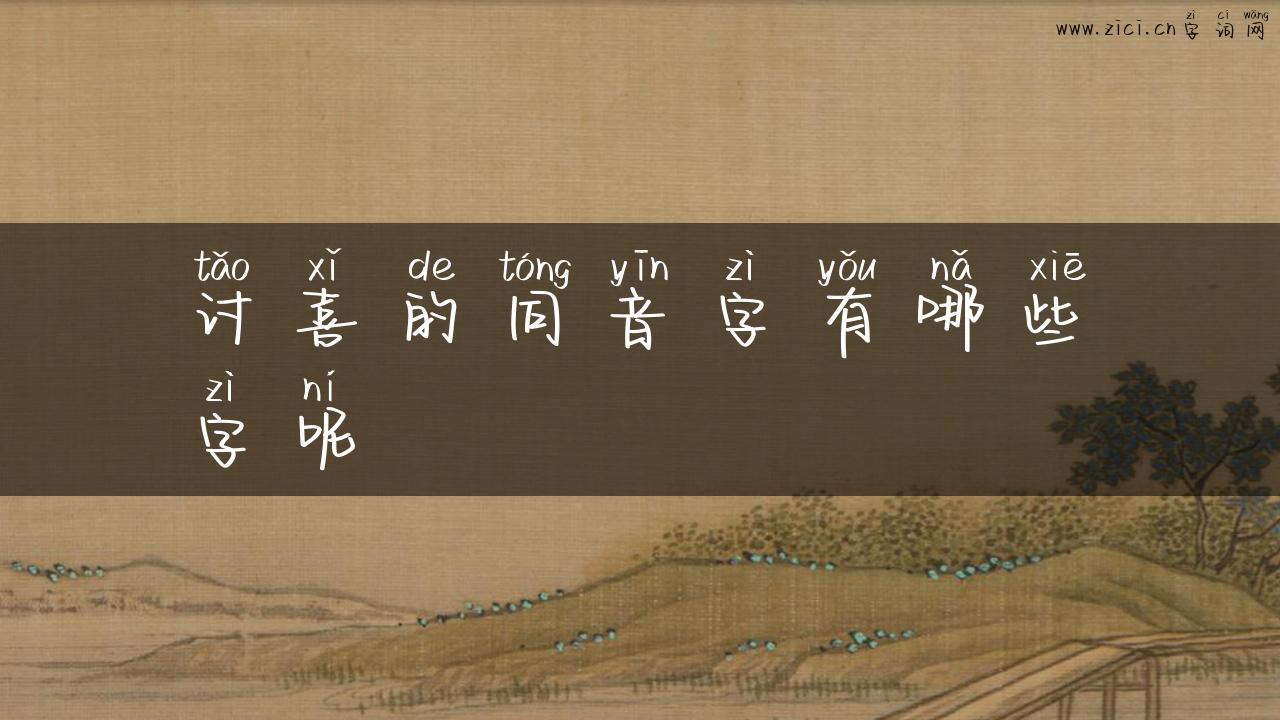 zì cí wǎng
www.zici.cn字词网
tǎo xǐ de tóng yīn zì yǒu nǎ xiē
讨喜的同音字有哪些
zì ní
字呢